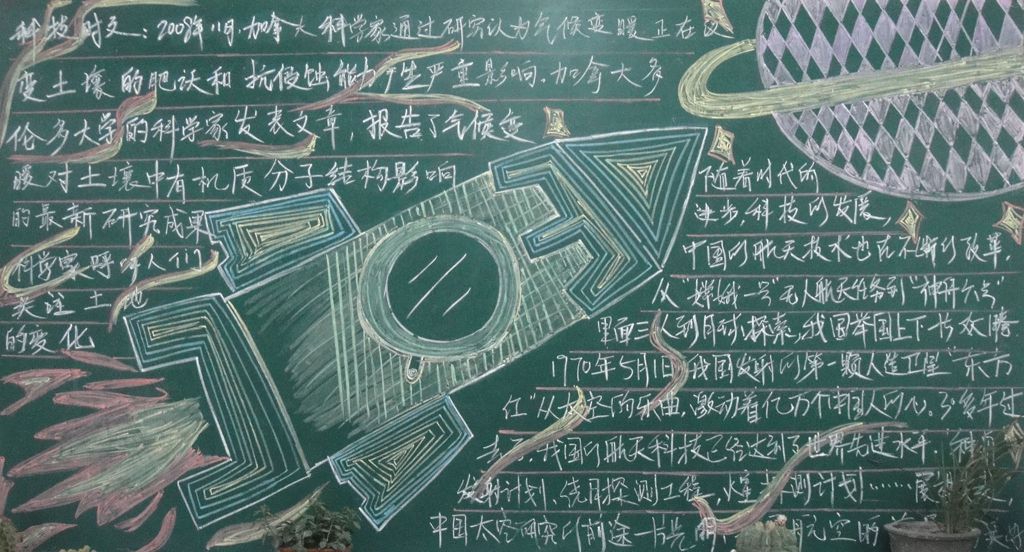 科技时文：2008年11月，加拿大科学家通过研究认为气候变暖正在改
变土壤的肥沃和抗侵蚀能力，产生严重影响。加拿大多
伦多大学的科学家发表文章，报告了气候变
暖对土壤中有机质分子结构影响
的最新研究成果
科学家呼吁人们
关注土地
的变化
随着时代的
进步，科技的发展，
中国的航天技术也在不断的改革，
从"嫦娥一号"无人航天任务到"神舟六号"
里面三人到月球探索，我国举国上下一片欢腾
1970年5月1日我国发射的第一颗人造卫星"东方
红"从太空的乐曲，激动着亿万个中国人的心。30多年过
去了，我国的航天科技已经达到了世界先进水平，
发射计划、绕月探测工程、测计划……
中国太空研究的前途一片光明